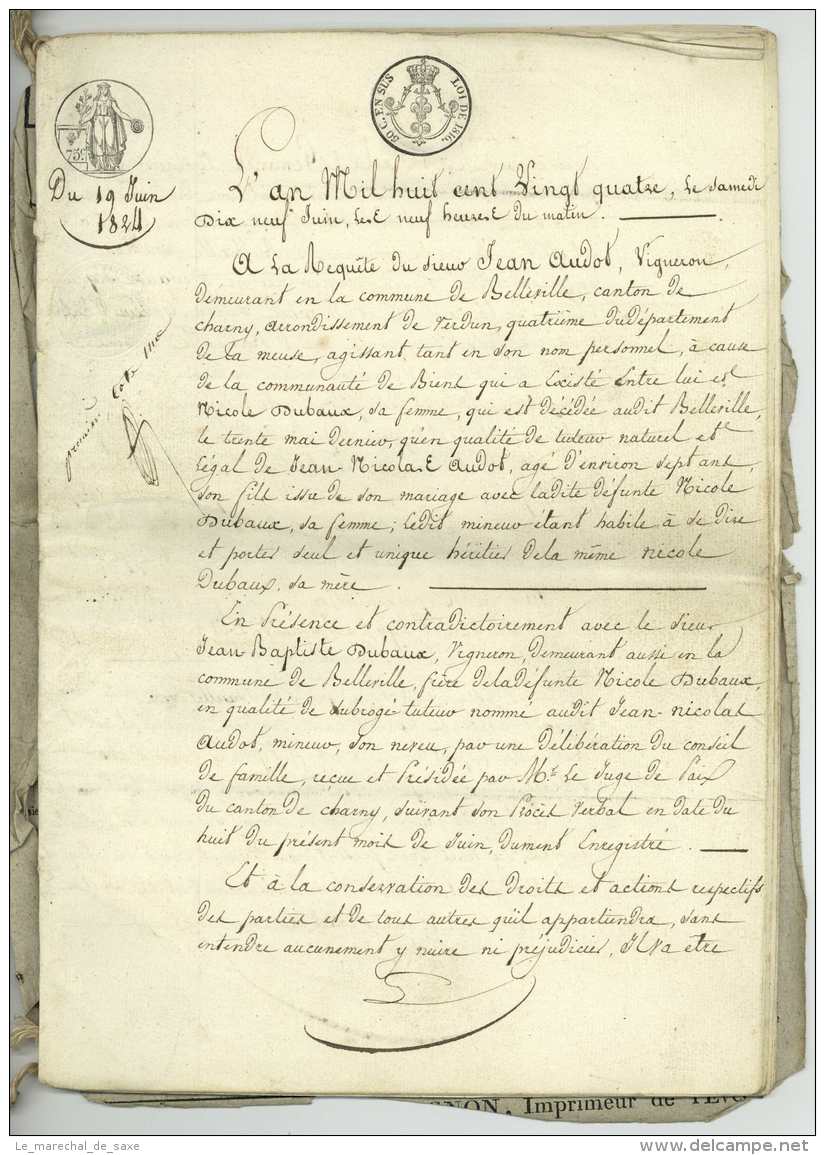 30 C. EN SUS LOI DE 1816.
75 c.
Du 19 Juin
1824
L'an Mil huit cent Vingt quatre, le samedi
Dix neuf Juin, les neuf heures du matin.
A La Requête du sieur Jean Audot, Vigneron,
demeurant en la commune de Belleville, canton de
charny, arrondissement de Verdun, quatrième du département
de la meuse, agissant, tant en son nom personnel, à cause
de la communauté de Biens qui a Existé Entre lui et
Nicole Dubaux, sa femme, qui est décédée audit Belleville,
le trente mai dernier, qu'en qualité de tuteur naturel et
légal de Jean-Nicolas Audot, agé d'environ sept ans,
son fils issu de son mariage avec ladite défunte Nicole
Dubaux, sa femme; ledit mineur étant habile à se dire
et porter seul et unique héritier de la même nicole
Dubaux, sa mère.
premier Cote une
En Présence et contradictoirement avec le sieur
Jean Baptiste Dubaux, Vigneron, demeurant aussi en la
commune de Belleville, frère de la défunte Nicole Dubaux,
en qualité de subrogé-tuteur nommé audit Jean-nicolas
Audot, mineur, son neveu, par une délibération du conseil
de famille, reçue et Présidée par Mr. Le Juge de Paix
du canton de Charny, suivant son Procès Verbal en date du
huit du présent mois de Juin, dument Enregistré.
Et à la conservation des Droits et actions respectifs
des parties et de tous autres qu'il appartiendra, sans
entendre aucunement y nuire ni préjudicier, Il va être
GNON, Imprimeur de l'Evê
Le_marechal_de_saxe
delcampe.net